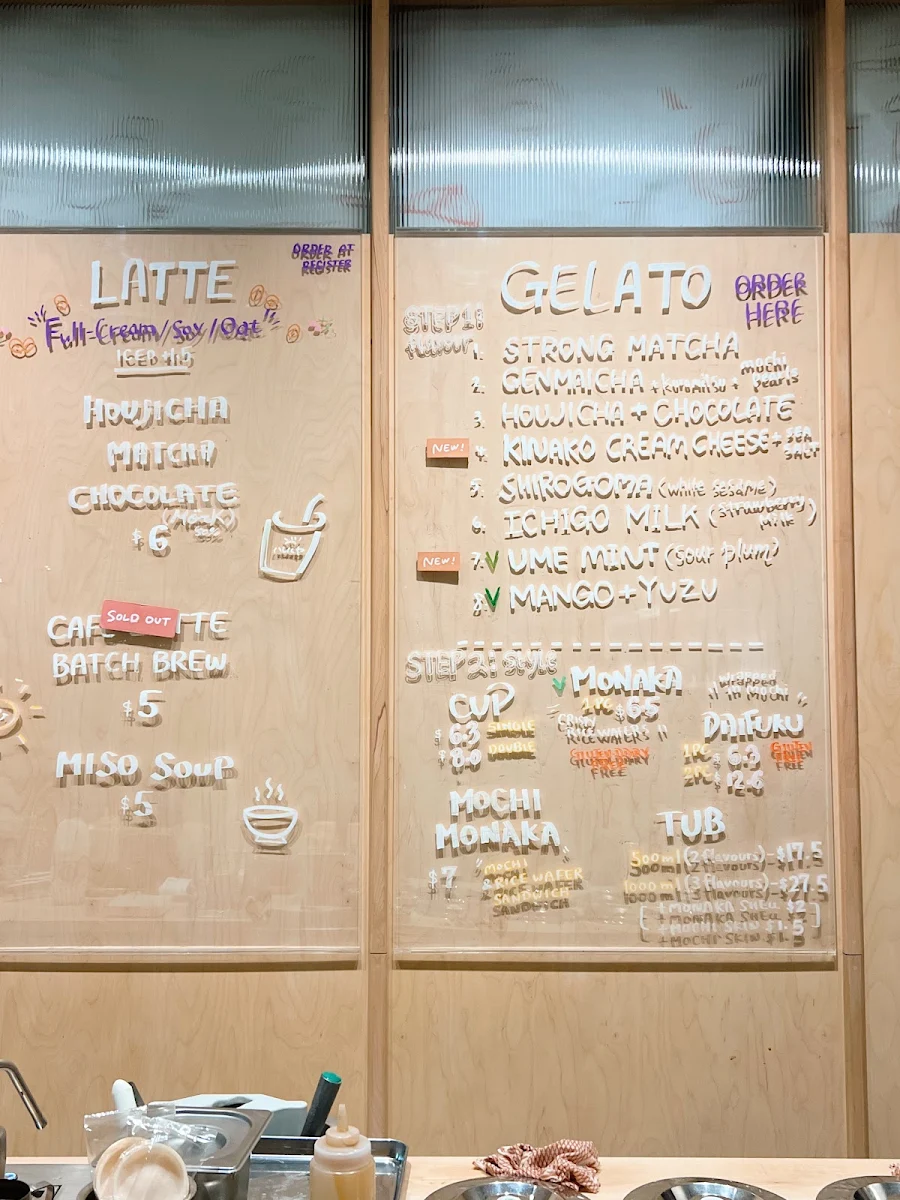 LATTE
ORDER AT
REGISTER
Full-Cream/Soy/Oat
ICED +1.5
HOUJICHA
MATCHA
CHOCOLATE
$6
SOLD OUT
BATCH BREW
$5
MISO SOUP
$5
GELATO
ORDER
HERE
STEP 1:
flavour
1. STRONG MATCHA
2. GENMAICHA + kuromitsu + mochi pearls
3. HOUJICHA + CHOCOLATE
NEW! 4. KINAKO CREAM CHEESE + SEA SALT
5. SHIROGOMA (white sesame)
6. ICHIGO MILK (strawberry milk)
NEW! 7. V UME MINT (sour plum)
8. V MANGO + YUZU
STEP 2: style
CUP
$6.3 SINGLE
$8.0 DOUBLE
V MONAKA
1PC $6.5
CRISPY
RICE WAFERS
GLUTEN/DAIRY
FREE
"wrapped
in mochi"
DAIFUKU
1PC $6.3
2PC $12.6
GLUTEN
FREE
MOCHI
MONAKA
$7
"MOCHI
& RICE WAFER
SANDWICH"
TUB
500ml (2 flavours) - $17.5
1000ml (3 flavours) - $27.5
[+MONAKA SHELL $2
+MOCHI SKIN $1.5]